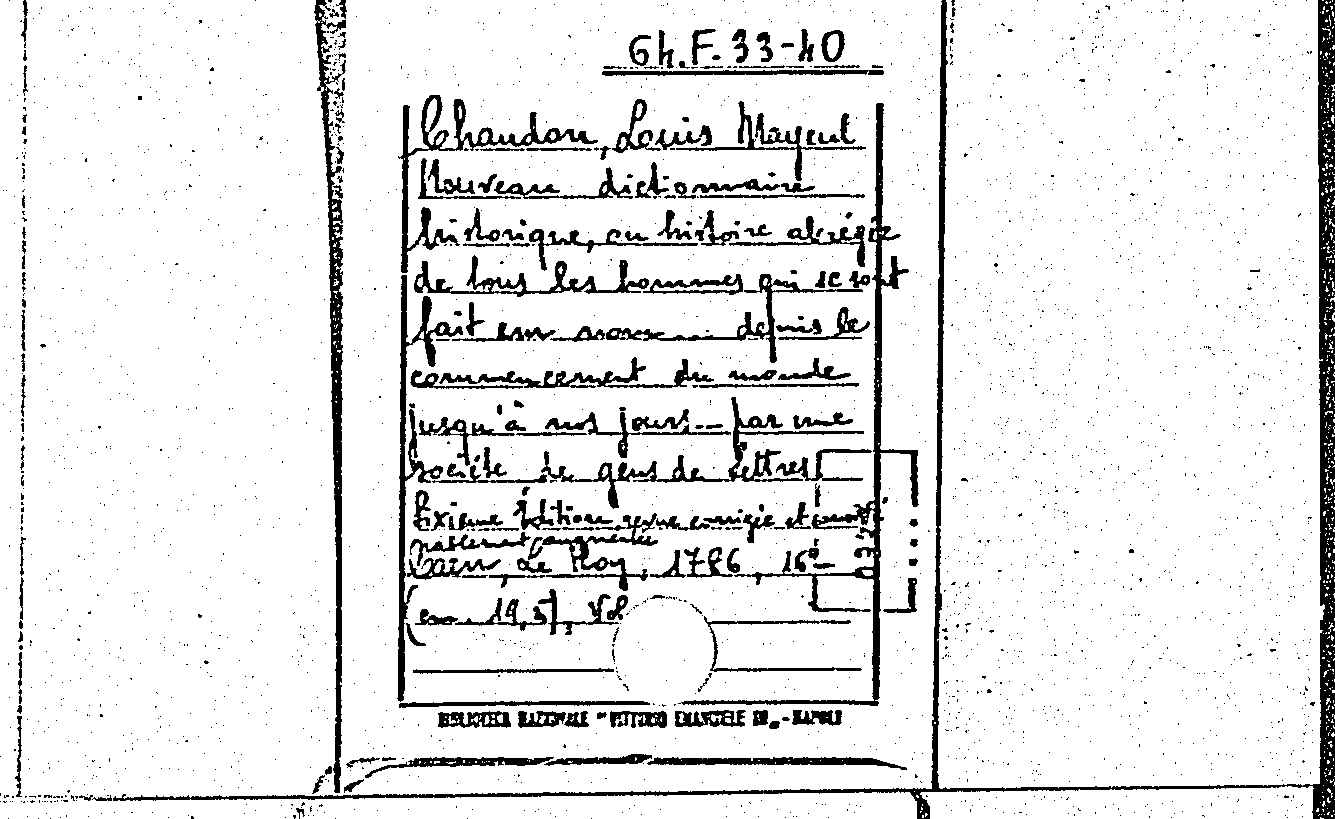 64.F.33-40
Chaudon, Louis Mayeul
Nouveau dictionnaire
historique, ou histoire abrégée
de tous les hommes qui se sont
fait un nom ... depuis le
commencement du monde
jusqu'à nos jours... par une
société de gens de lettres.
Sixieme Édition, revue corrigée et
augmentée
Caen, Le Roy, 1786, 16°
(cm. 19,5), Vol
BIBLIOTECA NAZIONALE "VITTORIO EMANUELE III" - NAPOLI